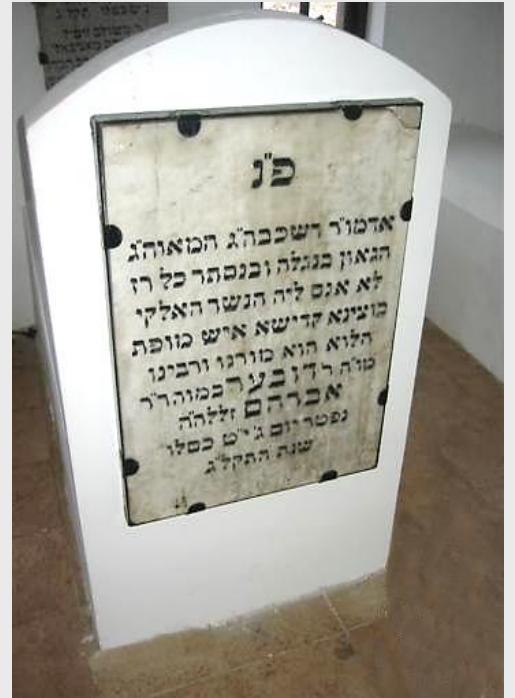 פ"נ
אדמו"ר רשכבה"ג המאוה"ג
הגאון בנגלה ובנסתר כל רז
לא אנס ליה הנשר האלקי
מוצינא קדישא איש מופת
הלוא הוא מורנו ורבינו
מו"ה ר דובער במוהר"ר
אברהם זללה"ה
נפטר יום ג' י"ט כסלו
שנת התקל"ג